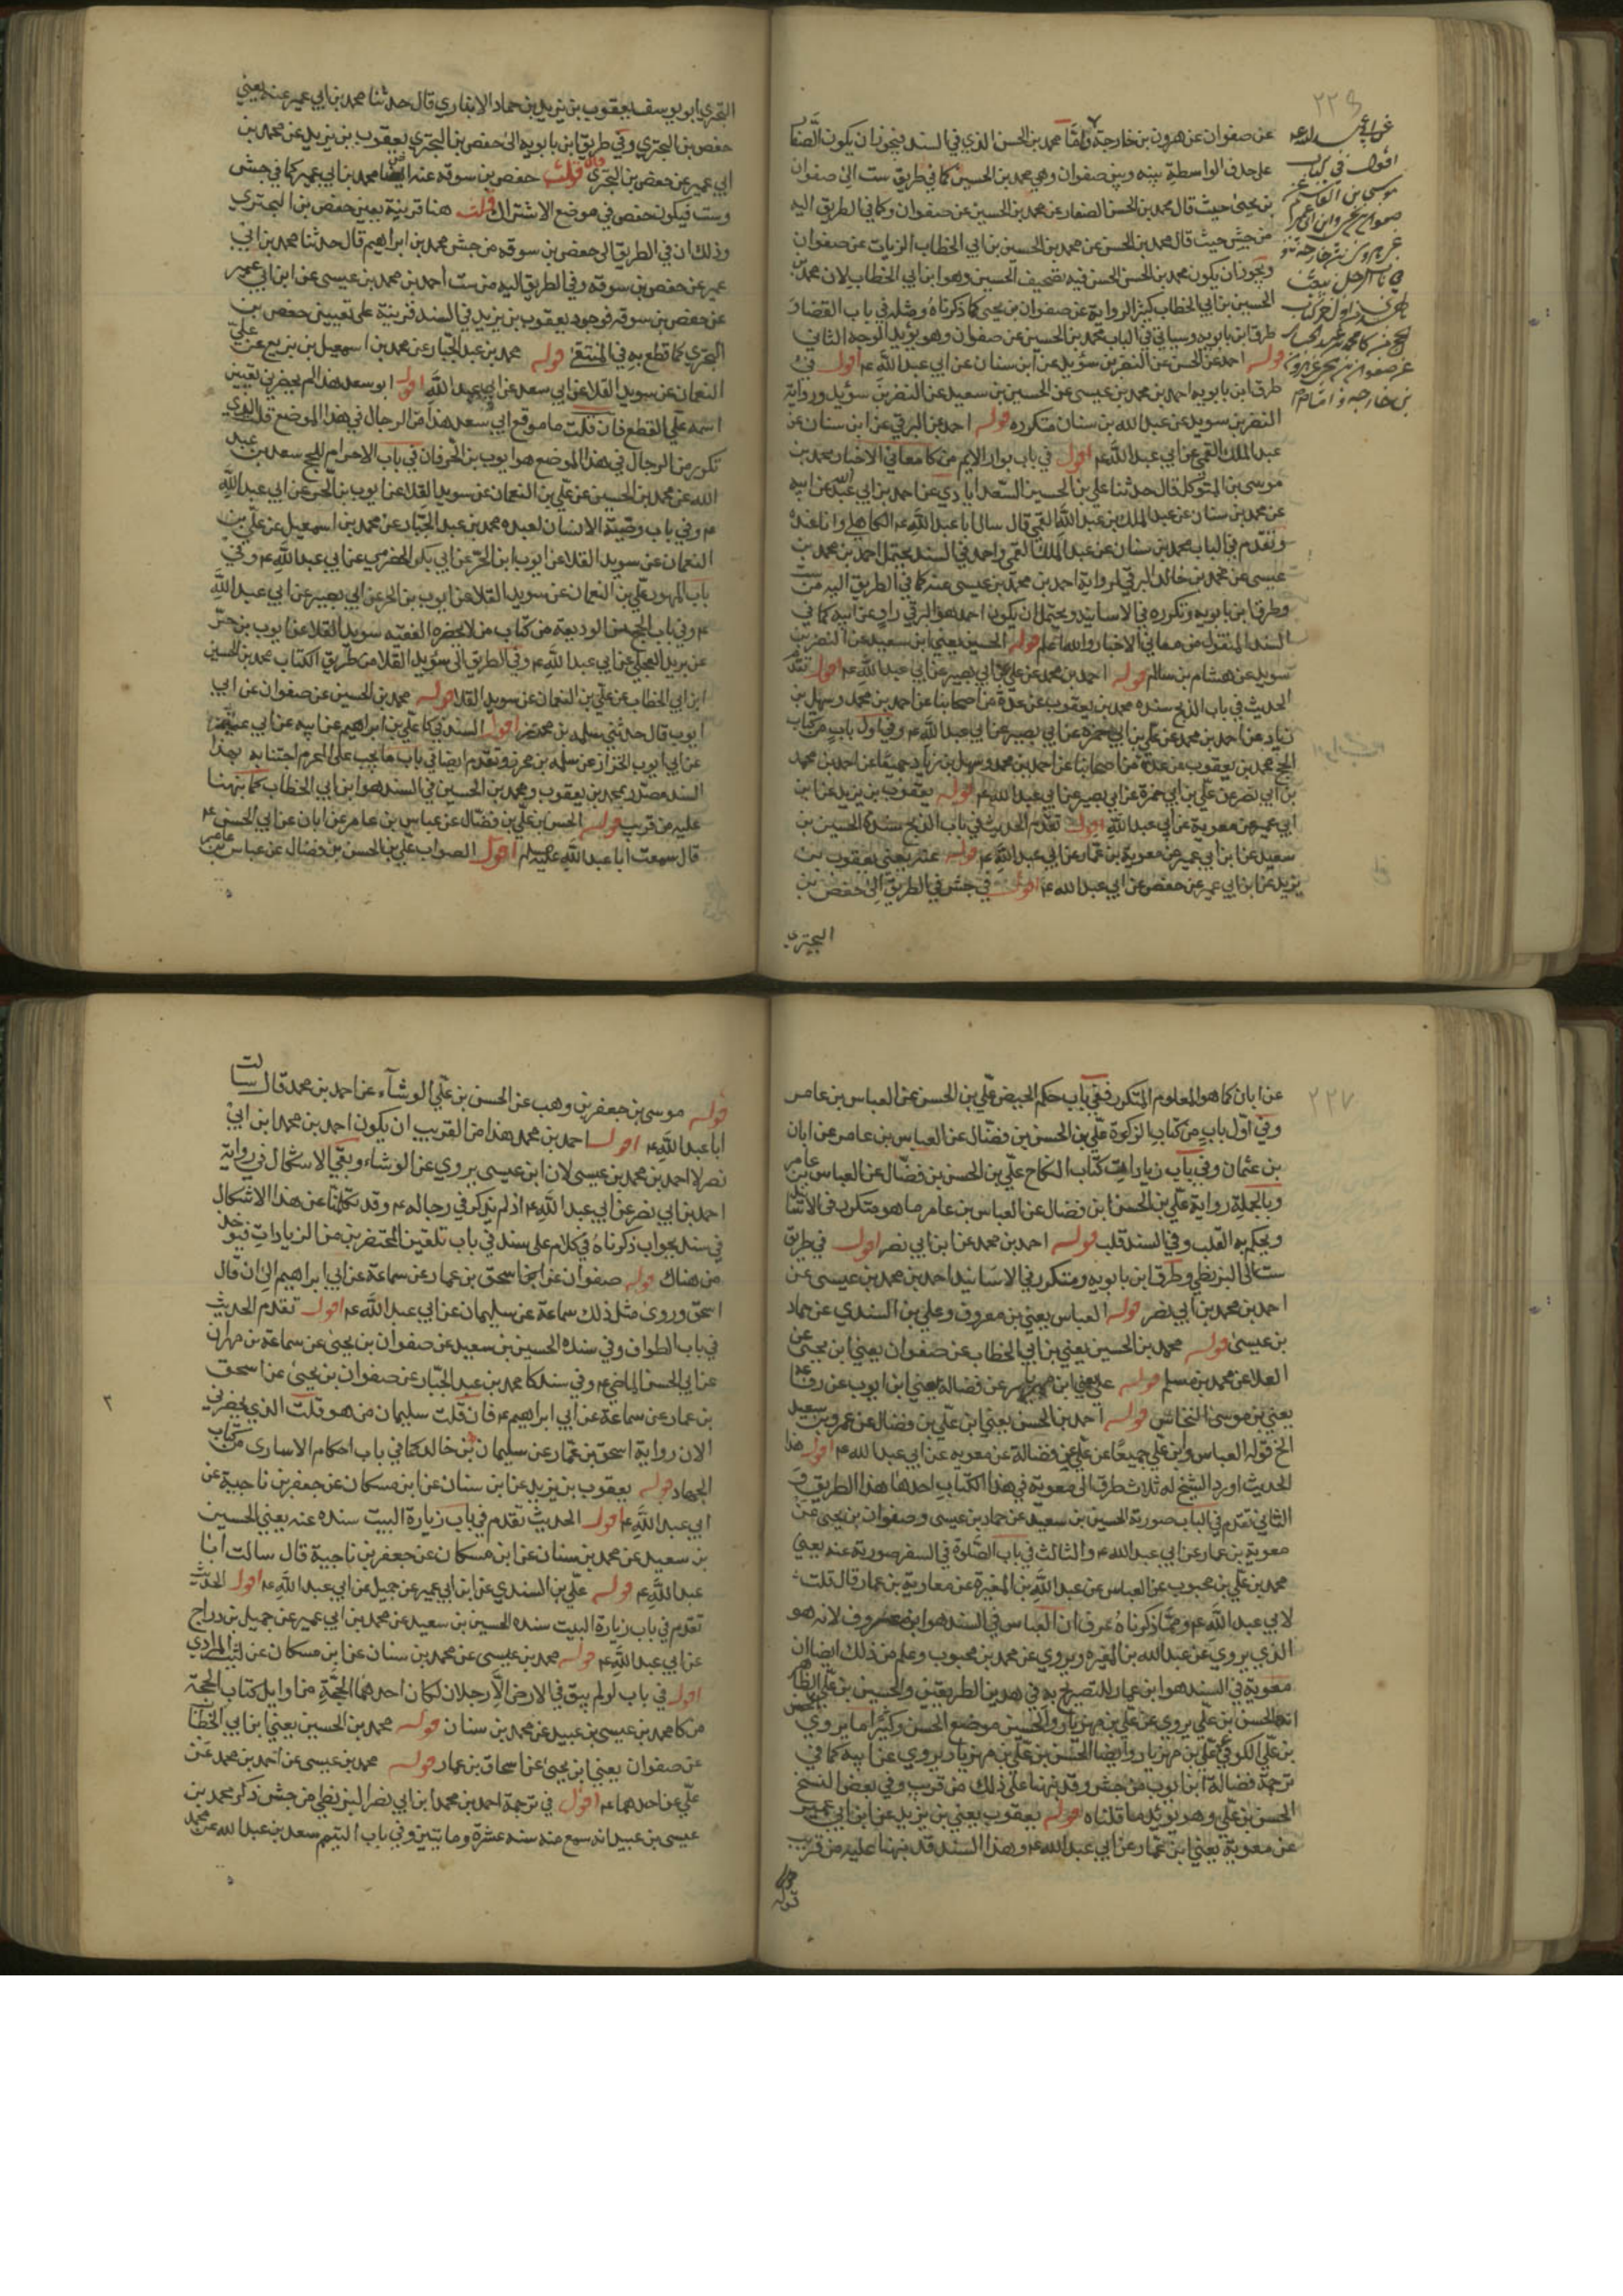 ٢٢٦
عن صفوان عن هرون بن خارجة واما محمد بن الحسن الذي في السند فيجوز ان يكون الصفار
على حذف الواسطة بينه وبين صفوان وهي محمد بن الحسين كما في طريق ست الى صفوان
بن يحيى حيث قال محمد بن الحسن الصفار عن محمد بن الحسين عن صفوان وكما في الطريق اليه
من جش حيث قال محمد بن الحسن عن محمد بن الحسين بن ابي الخطاب الزيات عن صفوان
ويجوز ان يكون محمد بن الحسن الحسن فيه تصحيف الحسين وهو ابن ابي الخطاب لان محمد بن
الحسين بن ابي الخطاب كثير الرواية عن صفوان بن يحيى كما ذكرناه ومثله في باب القضاء
طرق ابن بابويه وسياتي في الباب محمد بن الحسين عن صفوان وهو يؤيد الوجه الثاني
قوله احمد عن الحسن عن النضر بن سويد عن ابن سنان عن ابي عبد الله ع اقول في
طرق ابن بابويه احمد بن محمد بن عيسى عن الحسين بن سعيد عن النضر بن سويد ورواية
النضر بن سويد عن عبد الله بن سنان متكررة قوله احمد عن البرقي عن ابن سنان عن
عبد الملك القمي عن ابي عبد الله ع اقول في باب نوادر الايم من كا معاني الاخبار محمد بن
موسى بن المتوكل قال حدثنا علي بن الحسين السعد ابادي عن احمد بن ابي عبد الله عن ابيه
عن محمد بن سنان عن عبد الملك بن عبد الله القمي قال سال ابا عبد الله ع الكاهلي وانا عنده
وتقدم في الباب محمد بن سنان عن عبد الملك القمي واحمد في السند يحتمل احمد بن محمد بن
عيسى عن محمد بن خالد البرقي لرواية احمد بن محمد بن عيسى عنه كما في الطريق اليه من ست
وطرق ابن بابويه وتكرره في الاسانيد ويحتمل ان يكون احمد هو البرقي راو عن ابيه كما في
السند المنقول من معاني الاخبار والله اعلم قوله الحسين يعني ابن سعيد عن النضر بن
سويد عن هشام بن سالم قوله احمد بن محمد عن علي عن ابي بصير عن ابي عبد الله ع اقول تقدم
الحديث في باب الذبح سنده محمد بن يعقوب عن عدة من اصحابنا عن احمد بن محمد وسهل بن
زياد عن احمد بن محمد عن علي بن ابي حمزة عن ابي بصير عن ابي عبد الله ع وفي اول باب من كتاب
الحج محمد بن يعقوب عن عدة من اصحابنا عن احمد بن محمد وسهل بن زياد جميعا عن احمد بن محمد
بن ابي نصر عن علي بن ابي حمزة عن ابي بصير عن ابي عبد الله ع قوله يعقوب بن يزيد عن ابن
ابي عمير عن معوية عن ابي عبد الله اقول تقدم الحديث في باب الذبح سنده الحسين بن
سعيد عن ابن ابي عمير عن معوية بن عمار عن ابي عبد الله ع قوله عنه يعني يعقوب بن
يزيد عن ابن ابي عمير عن حفص عن ابي عبد الله ع اقول في جش في الطريق الى حفص بن
البختري
اقول في كتاب
موسى بن القاسم عن
بن خارجة
البختري ابو يوسف يعقوب بن يزيد بن حماد الانباري قال حدثنا محمد بن ابي عمير عنه يعني
حفص بن البختري وفي طريق ابن بابويه الى حفص بن البختري يعقوب بن يزيد عن محمد بن
ابي عمير عن حفص بن البختري فان قلت حفص بن سوقه عنه ايضا محمد بن ابي عمير كما في جش
وست فيكون حفص في موضع الاشتراك قلت هنا قرينة يعين حفص بن البختري
وذلك ان في الطريق الى حفص بن سوقه من جش محمد بن ابراهيم قال حدثنا محمد بن ابي
عمير عن حفص بن سوقه وفي الطريق اليه من ست احمد بن محمد بن عيسى عن ابن ابي عمير
عن حفص بن سوقه فوجود يعقوب بن يزيد في السند قرينة على تعيين حفص بن
البختري كما قطع به في المنتقى قوله محمد بن عبد الجبار عن محمد بن اسمعيل بن بزيع عن علي
النعمان عن سويد القلا عن ابي سعد عن ابي عبد الله اقول ابو سعد هذا لم يحضرني تعيين
اسمه على القطع فان قلت ما موقع ابي سعد هذا من الرجال في هذا الموضع قلت الذي
تكرر من الرجال في هذا الموضع هو ايوب بن الحر فان في باب الاحرام للحج سعد بن عبد
الله عن محمد بن الحسين عن علي بن النعمان عن سويد القلا عن ايوب بن الحر عن ابي عبد الله
ع وفي باب وصية الانسان لعبده محمد بن عبد الجبار عن محمد بن اسمعيل عن علي بن
النعمان عن سويد القلا عن ايوب بن الحر عن ابي بكر الحضرمي عن ابي عبد الله ع وفي
باب المهور علي بن النعمان عن سويد القلا عن ايوب بن الحر عن ابي بصير عن ابي عبد الله
ع وفي باب الحج من الوديعة من كتاب من لا يحضره الفقيه سويد القلا عن ايوب بن حر
عن بريد العجلي عن ابي عبد الله ع وفي الطريق الى سويد القلا من طريق الكتاب محمد بن الحسين
ابن ابي الخطاب عن علي بن النعمان عن سويد القلا قوله محمد بن الحسين عن صفوان عن ابي
ايوب قال حدثني سلمه بن محرز اقول السند في كا علي بن ابراهيم عن ابيه عن ابي عمير
عن ابي ايوب الخزاز عن سلمه بن محرز وتقدم ايضا في باب ما يجب على المحرم اجتنابه بهذا
السند مصدر بمحمد بن يعقوب ومحمد بن الحسين في السند هو ابن ابي الخطاب كما نبهنا
عليه من قريب قوله الحسن بن علي بن فضال عن عباس بن عامر عن ابان عن ابي الحسن ع
قال سمعت ابا عبد الله عليه السلام اقول الصواب علي بن الحسن بن فضال عن عباس بن عامر
٢٢٧
عن ابان كما هو المعلوم المتكرر ففي باب حكم الحيض علي بن الحسن عن العباس بن عامر
وفي اول باب من كتاب الزكوة علي بن الحسن بن فضال عن العباس بن عامر عن ابان
بن عثمان وفي باب زيادات كتاب النكاح علي بن الحسن بن فضال عن العباس بن عامر
وبالجملة رواية علي بن الحسن ابن فضال عن العباس بن عامر مما هو متكرر في الاسناد
ويحكم به القلب وفي السند قلب قوله احمد بن محمد عن ابن ابي نصر اقول في طريق
ست الى البزنطي وطرق ابن بابويه ومتكرر في الاسانيد احمد بن محمد بن عيسى عن
احمد بن محمد بن ابي نصر قوله العباس يعني بن معروف وعلي بن السندي عن حماد
بن عيسى قوله محمد بن الحسين يعني بن ابي الخطاب عن صفوان يعني ابن يحيى عن
العلا عن محمد بن مسلم قوله علي يعني ابن مهزيار عن فضالة يعني ابن ايوب عن رفاعة
يعني بن موسى النخاس قوله احمد بن الحسن يعني ابن علي بن فضال عن عمرو بن سعيد
الخ قوله العباس وابن علي جميعا عن علي عن فضالة عن معويه عن ابي عبد الله ع اقول هذا
الحديث اورد الشيخ له ثلاث طرق الى معوية في هذا الكتاب احدها هذا الطريق و
الثاني تقدم في الباب صورية الحسين بن سعيد عن حماد بن عيسى وصفوان بن يحيى عن
معوية بن عمار عن ابي عبد الله ع والثالث في باب الصلوة في السفر صورية عنه يعني
محمد بن علي بن محبوب عن العباس عن عبد الله بن المغيرة عن معاوية بن عمار قال قلت
لابي عبد الله ع ومما ذكرناه عرف ان العباس في السند هو ابن معروف لانه هو
الذي يروي عن عبد الله بن المغيره ويروي عن محمد بن محبوب وعلم من ذلك ايضا ان
معوية في السند هو ابن عمار للتصريح به في هذين الطريقين والحسين بن علي الظاهر
انه الحسن بن علي يروي عن علي بن مهزيار والحسين موضع الحسن وكثيرا ما يروي الحسن
بن علي الكوفي عن علي بن مهزيار وايضا الحسن بن علي بن مهزيار يروي عن ابيه كما في
ترجمة فضالة ابن ايوب من جش وقد نبهنا على ذلك من قريب وفي بعض النسخ
الحسن بن علي وهو يؤيد ما قلناه قوله يعقوب يعني بن يزيد عن ابن ابي عمير
عن معوية يعني ابن عمار عن ابي عبد الله ع وهذا السند قد نبهنا عليه من قريب
قوله
قوله موسى بن جعفر بن وهب عن الحسن بن علي الوشاء عن احمد بن محمد قال سالت
ابا عبد الله ع اقول احمد بن محمد هذا من القريب ان يكون احمد بن محمد ابن ابي
نصر لا احمد بن محمد بن عيسى لان ابن عيسى يروي عن الوشاء وبقي الاشكال في رواية
احمد بن ابي نصر عن ابي عبد الله ع اذ لم يذكر في رجاله ع وقد تكلمنا عن هذا الاشكال
في سند بجواب ذكرناه في كلام على سند في باب تلقين المحتضرين من الزيادات فيوخذ
من هناك قوله صفوان عن اسحق بن عمار عن سماعة عن ابي ابراهيم الى ان قال
اسحق وروى مثل ذلك سماعة عن سليمان عن ابي عبد الله ع اقول تقدم الحديث
في باب الطواف وفي سنده الحسين بن سعيد عن صفوان بن يحيى عن سماعة بن مهران
عن ابي الحسن الماضي ع وفي سند كا محمد بن عبد الجبار عن صفوان بن يحيى عن اسحق
بن عمار عن سماعة عن ابي ابراهيم ع فان قلت سليمان من هو قلت الذي يحضرني
الان رواية اسحق بن عمار عن سليمان بن خالد كما في باب احكام الاسارى من كتاب
الجهاد قوله يعقوب بن يزيد عن ابن سنان عن ابن مسكان عن جعفر بن ناجية عن
ابي عبد الله ع اقول الحديث تقدم في باب زيارة البيت سنده عنه يعني الحسين
بن سعيد عن محمد بن سنان عن ابن مسكان عن جعفر بن ناجية قال سالت ابا
عبد الله ع قوله علي بن السندي عن ابن ابي عمير عن جميل عن ابي عبد الله ع اقول الحديث
تقدم في باب زيارة البيت سنده الحسين بن سعيد عن محمد بن ابي عمير عن جميل بن دراج
عن ابي عبد الله ع قوله محمد بن عيسى عن محمد بن سنان عن ابن مسكان عن ليث المرادي
اقول في باب لو لم يبق في الارض الا رجلان لكان احدهما الحجة من اوايل كتاب الحجة
من كا محمد بن عيسى بن عبيد عن محمد بن سنان قوله محمد بن الحسين يعني ابن ابي الخطاب
عن صفوان يعني ابن يحيى عن اسحاق بن عمار قوله محمد بن عيسى عن احمد بن محمد عن
علي عن احدهما ع اقول في ترجمة احمد بن محمد ابن ابي نصر البزنطي من جش ذكر محمد بن
عيسى بن عبيد انه سمع منه سنه عشرة ومايتين وفي باب التيمم سعد بن عبد الله عن محمد